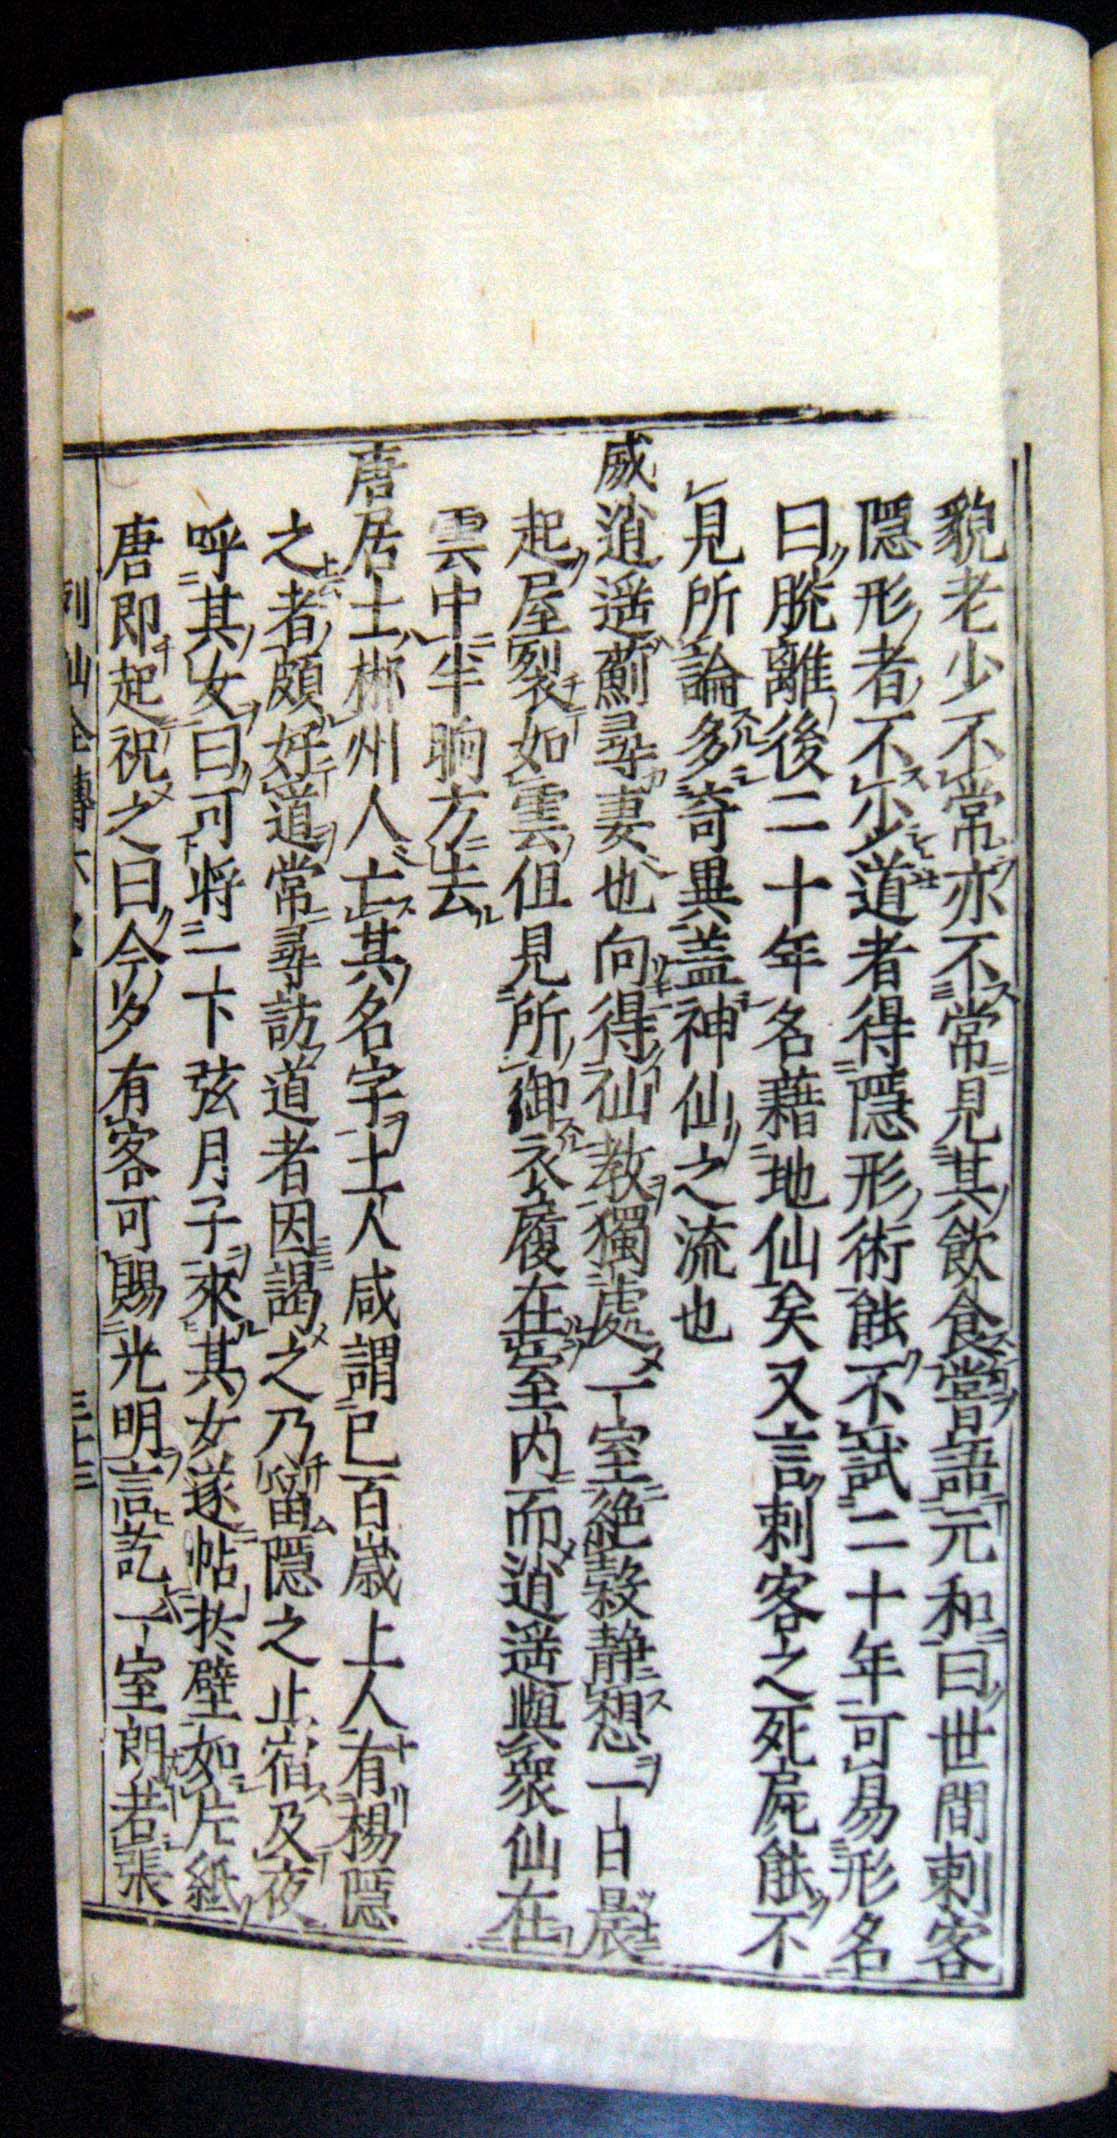 貌老少不常亦不常見其飲食嘗語元和曰世間刺客
隱形者不少道者得隱形術能不試二十年可易形名
曰脫離後二十年名藉地仙矣又言刺客之死屍能不
見所論多竒異盖神仙之流也
戚逍遥薊尋妻也向得仙教獨處一室絶糓静想一日晨
起屋裂如雲但見所御衣履在室内而逍遥與衆仙在
雲中半晌方去
唐居士郴州人亡其名字土人咸謂已百歳上人有楊隱
之者頗好道常尋訪道者因謁之乃留隱之止宿及夜
呼其女曰可将一下弦月子來其女遂帖扵壁如片紙
唐即起祝之曰今夕有客可賜光明言訖一室朗若張
列仙全傳六 三十三